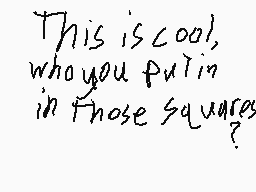 This is cool,
who you put in
in those squares
?